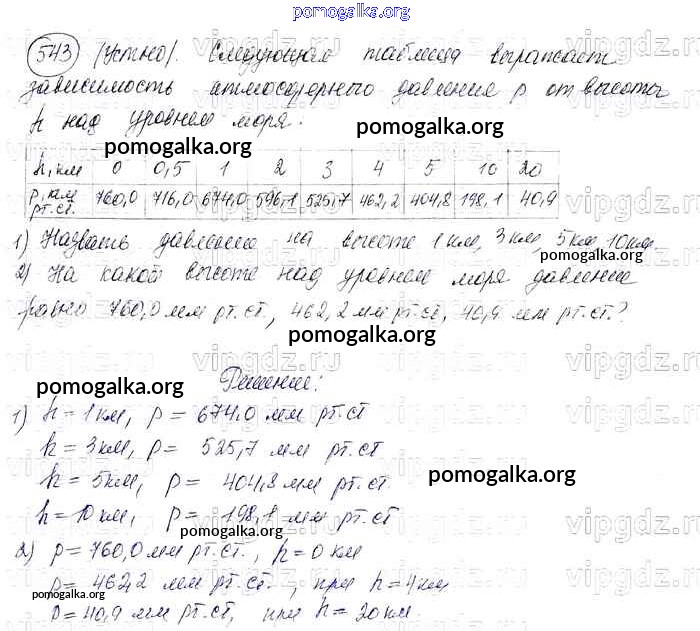 pomogalka.org
543 (Устно). Следующая таблица выражает
зависимость атмосферного давления p от высоты
h над уровнем моря:
pomogalka.org
h, км 0 0,5 1 2 3 4 5 10 20
p, км рт.ст. 760,0 716,0 674,0 596,1 525,7 462,2 404,8 198,1 40,9
1) Назвать давление на высоте 1 км, 3 км, 5 км, 10 км.
pomogalka.org
2) На какой высоте над уровнем моря давление
равно 760,0 мм рт.ст., 462,2 мм рт.ст, 40,9 мм рт.ст.?
pomogalka.org
vipgdz.ru
Решение:
pomogalka.org
1) h = 1 км, p = 674,0 мм рт.ст
h = 3 км, p = 525,7 мм рт.ст
h = 5 км, p = 404,8 мм рт.ст.
pomogalka.org
h = 10 км, p = 198,1 мм рт.ст.
pomogalka.org
2) p = 760,0 мм рт.ст., h = 0 км
p = 462,2 мм рт.ст., при h = 4 км
pomogalka.org
p = 40,9 мм рт.ст, при h = 20 км.
pomogalka.org